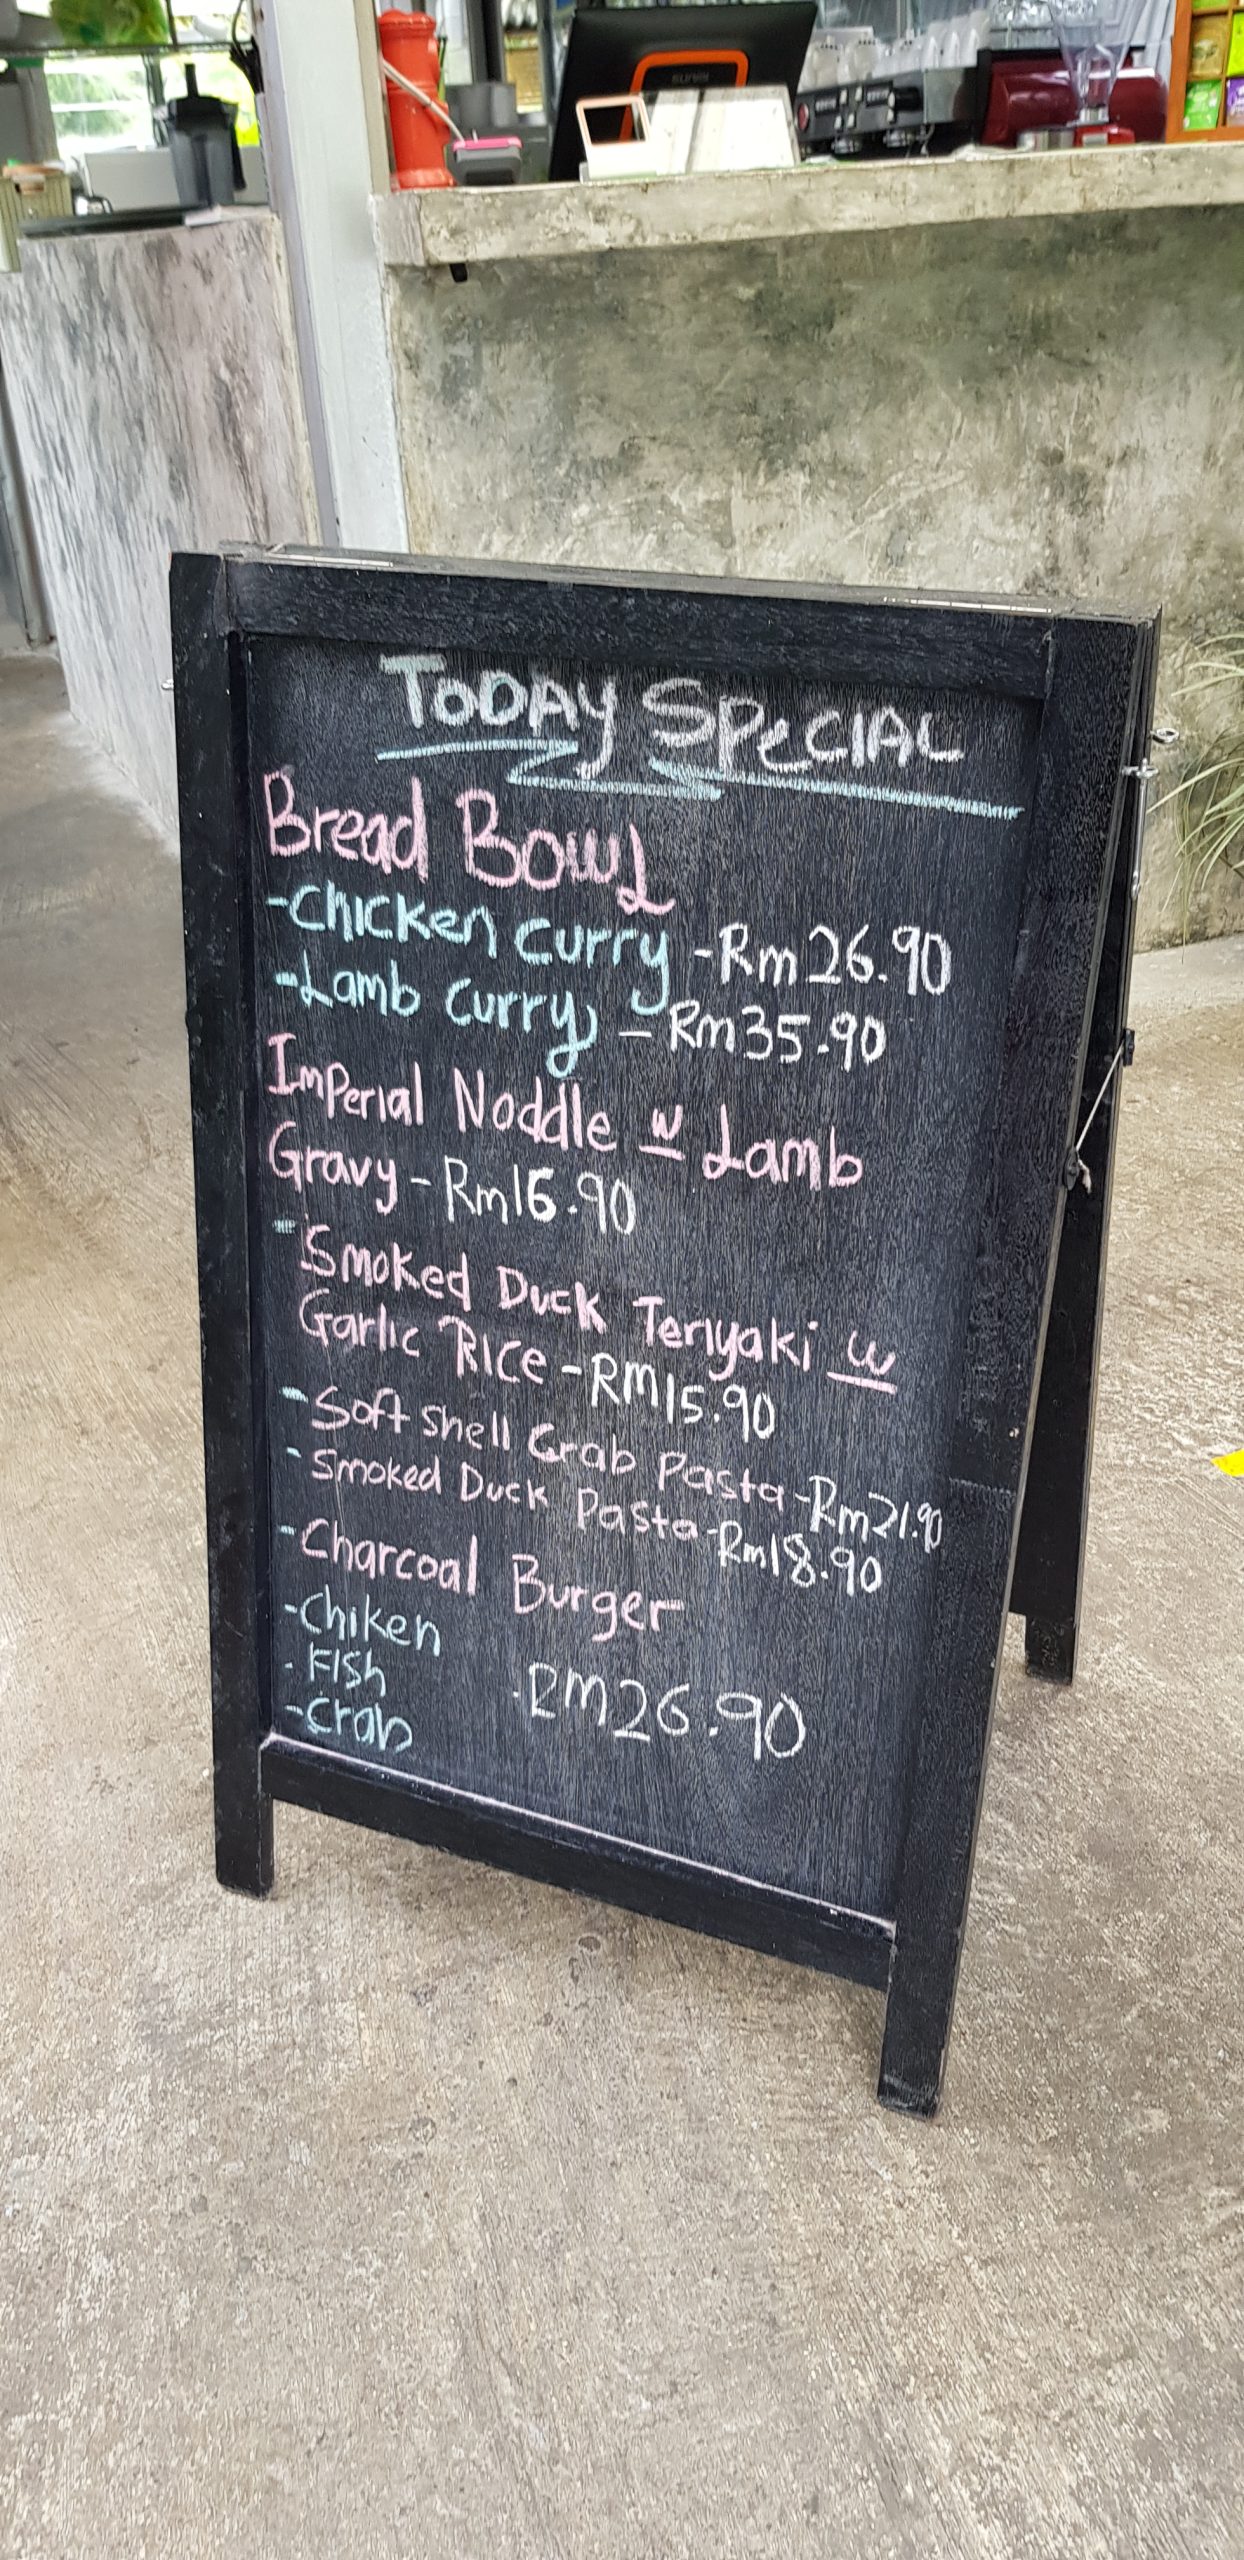 SUNMI
TODAY SPeCIAL
Bread BOWL
-CHICKen Curry -Rm26.90
-Lamb Curry - Rm35.90
Imperial Noddle w Lamb
Gravy - Rm16.90
- Smoked Duck Teriyaki w
Garlic Rice - RM15.90
- Soft Shell Crab Pasta - Rm21.90
- Smoked Duck Pasta - Rm18.90
- Charcoal Burger
- Chiken
- FISh
- Crab
RM26.90